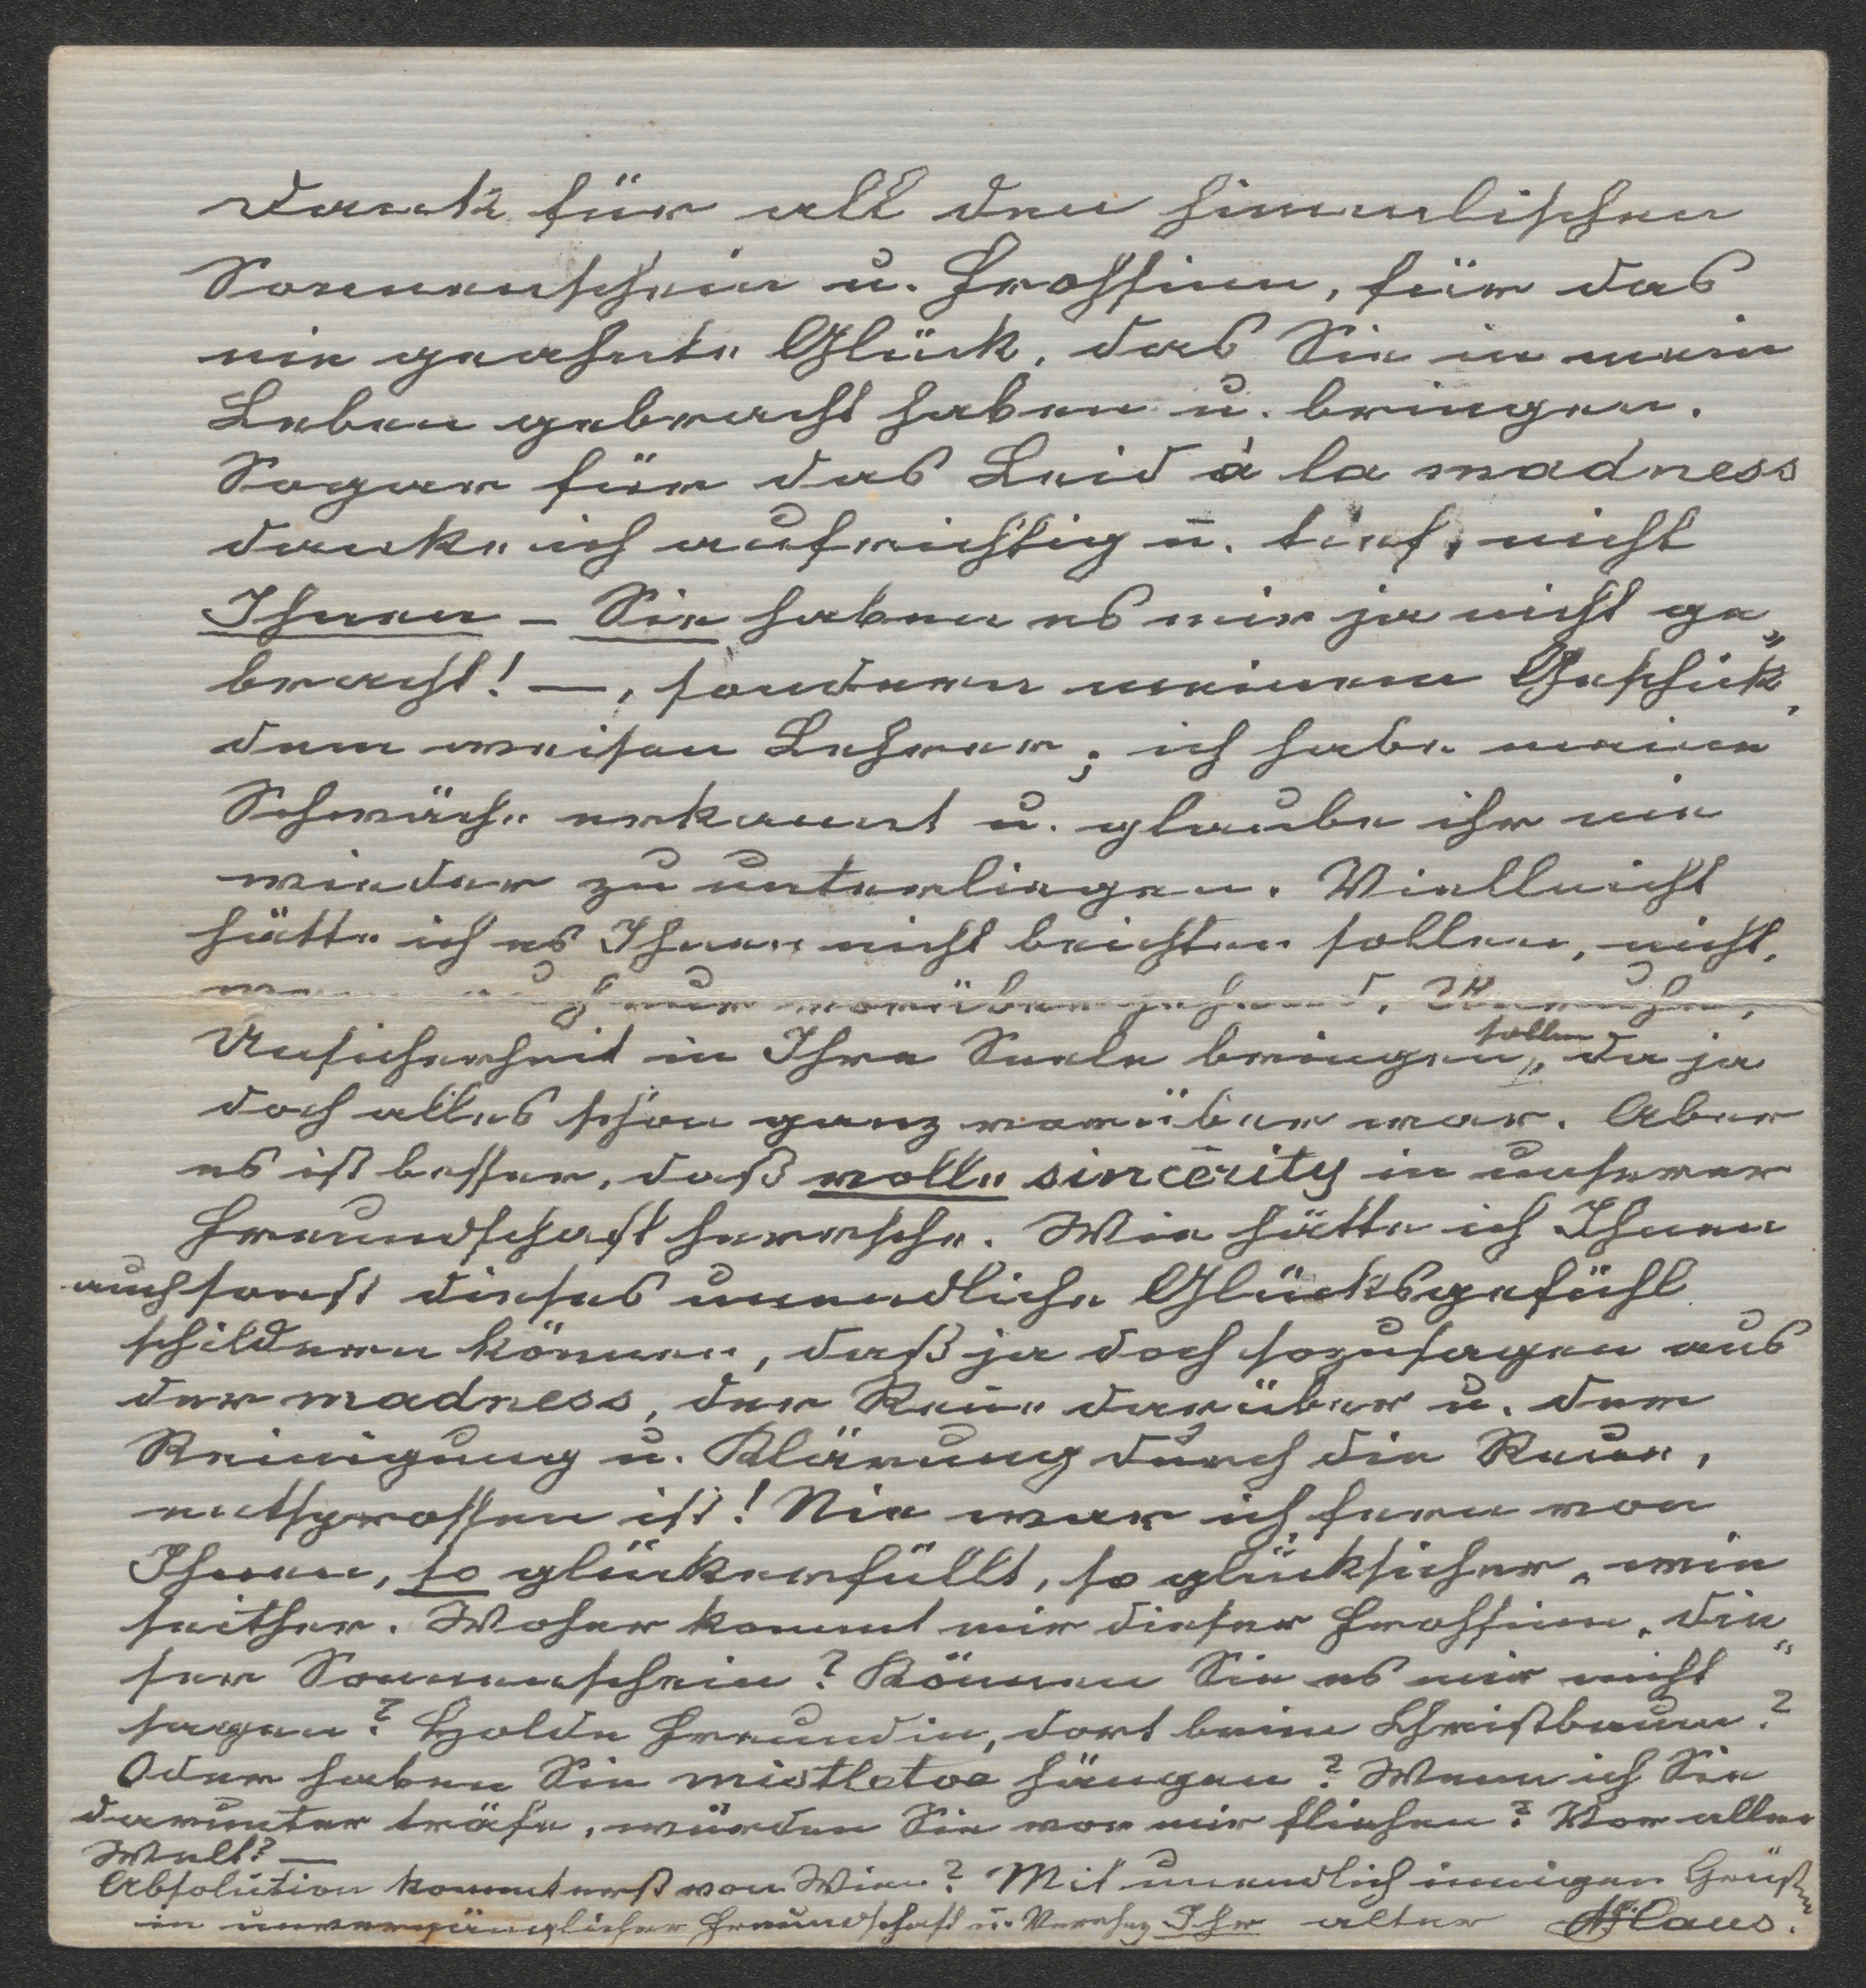 Dank für all den himmlischen
Sonnenschein u. Frohsinn, für das
nie geahnte Glück, das Sie in mein
Leben gebracht haben u. bringen.
Sogar für das Leid à la madness
danke ich aufrichtig u. tief, nicht
Ihnen – Sie haben es mir ja nicht ge„
bracht! –, sondern meinem Geschick,
dem weisen Lehrer; ich habe meine
Schwäche erkannt u. glaube ihr nie
wieder zu unterliegen. Vielleicht
hätte ich es Ihnen nicht beichten sollen, nicht,
wenn auch nur vorübergehend, Unruhe,
Unsicherheit in Ihre Seele bringen sollen, da ja
doch alles schon ganz vorüber war. Aber
es ist besser, daß volle sincerity in unserer
Freundschaft herrsche. Wie hätte ich Ihnen
auch sonst dieses unendliche Glücksgefühl
schildern können, daß ja doch sozusagen aus
der madness, der Reue darüber u. der
Reinigung u. Klärung durch die Reue,
entsprossen ist! Nie war ich, fern von
Ihnen, so glückerfüllt, so glücksicher, wie
seither. Woher kommt mir dieser Frohsinn, die„
ser Sonnenschein? Können Sie es mir nicht
sagen? Holde Freundin, dort beim Christbaum?
Oder haben Sie mistletoe hängen? Wenn ich Sie
darunter träfe, würden Sie vor mir fliehen? Vor aller
Welt? –
Absolution kommt erst von Wien? Mit unendlich innigen Grüßen
in unvergänglicher Freundschaft u. Verehrg Ihr alter Klaus.